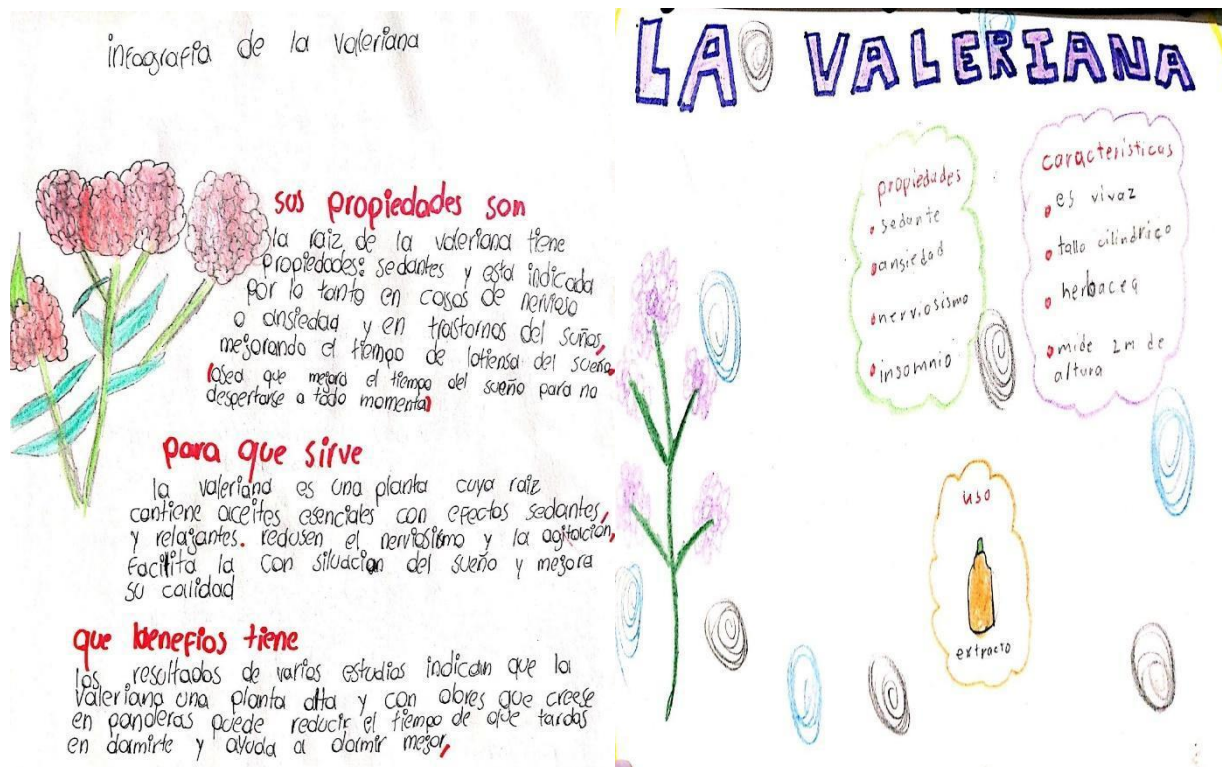 infografia de la valeriana
sus propiedades son
la raiz de la valeriana tiene
propiedades: sedantes y esta indicada
por lo tanto en casos de nervioso
o ansiedad y en trastornos del sueños,
mejorando el tiempo de latiensa del sueño,
(osea que mejora el tiempo del sueño para no
despertarse a todo momento)
para que sirve
la valeriana es una planta cuya raiz
contiene aceites esenciales con efectos sedantes,
y relajantes. redusen el nerviosismo y la agitación,
Facilita la con siluacion del sueño y mejora
su calidad
que benefios tiene
los resultados de varios estudios indican que la
valeriana una planta alta y con obres que creese
en panoleras puede reducir el tiempo de que tardas
en dormirte y ayuda a dormir mejor,
LA VALERIANA
propiedades
sedante
ansiedad
nerviosismo
insomnio
características
es vivaz
tallo cilíndrico
herbacea
mide 2m de
altura
uso
extracto